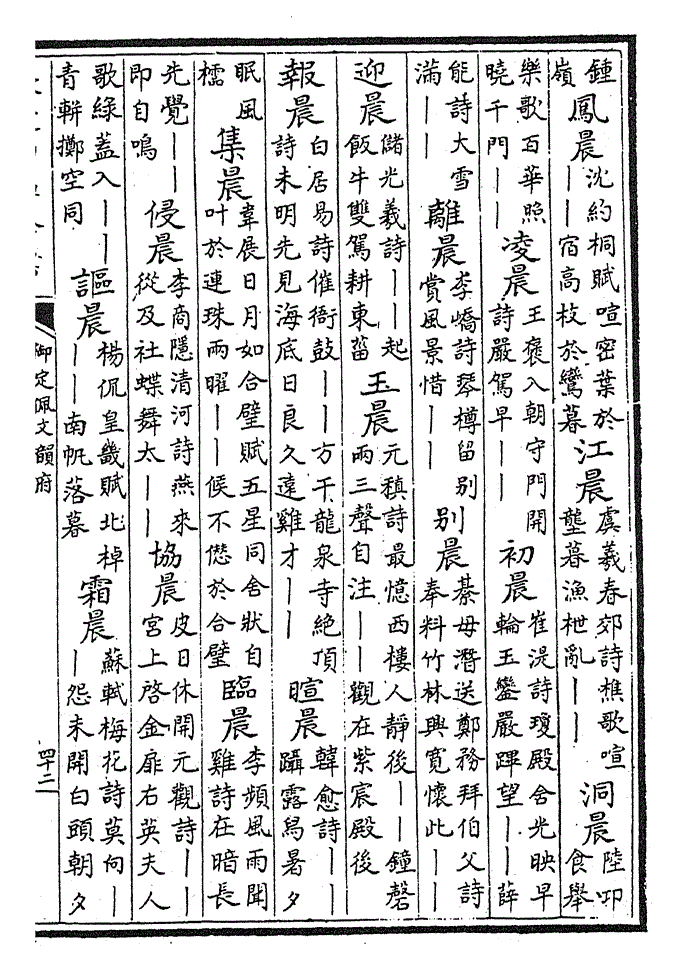 鍾嶺鳳晨沈約桐賦喧密葉於——宿高枝於鸞暮江晨虞羲春郊詩樵歌喧壟暮漁枻亂——洞晨陸卭食舉
樂歌百華照曉千門——凌晨王褒入朝守門開詩嚴駕早——初晨崔湜詩瓊殿舍光映早輪玉鑾嚴蹕望——薛
能詩大雪滿——離晨李嶠詩琴樽留別賞風景惜——別晨綦毋潛送鄭務拜伯父詩奉料竹林興寬懷此——
迎晨儲光羲詩——起飯牛雙駕耕東菑玉晨元稹詩最憶西樓人靜後——鐘磬兩三聲自注——觀在紫宸殿後
報晨白居易詩催衙鼓——方干龍泉寺絶頂詩未明先見海底日良久遠雞才——暄晨韓愈詩——躡露舄暑夕
眠風檽集晨韋展日月如合璧賦五星同舍狀自叶於連珠兩曜——候不僁於合璧臨晨李頻風雨聞雞詩在暗長
先覺——即自鳴侵晨李商隱清河詩燕來從及社蝶舞太——協晨皮日休開元觀詩——宮上啓金扉右英夫人
歌綠蓋入——青軿擲空同謳晨楊侃皇畿賦北棹——南帆落暮霜晨蘇軾梅花詩莫向——怨未開白頭朝夕
御定佩文韻府
四十二